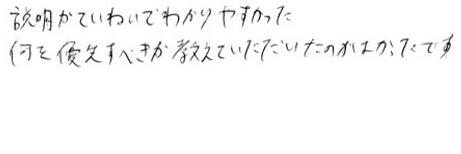 説明がていねいでわかりやすかった
何を優先すべきか教えていただいたのがよかったです